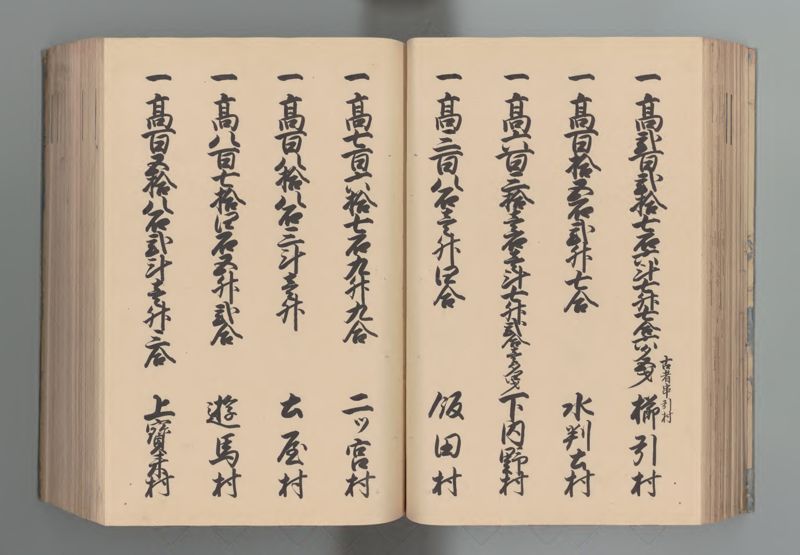 一高弐百弐拾七石六斗七升七合六夕 古者串引村 櫛引村
一高百拾五石弐升七合 水判土村
一高六百三拾壱石壱斗七升弐合 下内野村
一高三百八石壱升四合 飯田村
一高七百六拾七石九升九合 二ッ宮村
一高百八拾八石三斗壱升 土屋村
一高八百七拾四石五升弐合 遊馬村
一高百五拾八石弐斗壱升三合 上寳来村